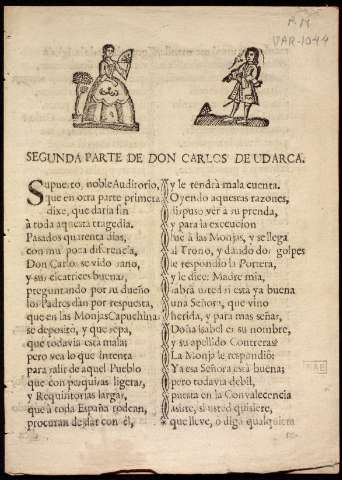 R M
VAR-1044
SEGUNDA PARTE DE DON CARLOS DE UDARCA.
Supuesto, noble Auditorio,
que en otra parte primera
dixe, que daria fin
à toda aquesta tragedia.
Pasados quarenta dias,
con muy poca diferencia,
Don Carlos se vido sano,
y sus cicatrices buenas,
preguntando por su dueño
los Padres dan por respuesta,
que en las Monjas Capuchinas
se depositò, y que sepa,
que todavia està mala;
pero vea lo que intenta
para salir de aquel Pueblo
que con pesquisas ligeras,
y Requisitorias largas,
que à toda España rodean,
procuran de dar con èl,
y le tendrà mala cuenta.
Oyendo aquestas razones,
dispuso vèr à su prenda,
y para la execucion
fue à las Monjas, y se llega
al Torno, y dando dos golpes
le respondiò la Portera,
y le dice: Madre mia,
sabrà usted si està ya buena
una Señora, que vino
herida, y para mas señas,
Doña Isabel es su nombre,
y su apellido Contreras?
La Monja le respondiò:
Ya esa Señora està buena;
pero todavia debil,
puesta en la Convalecencia
asiste, si usted quisiere,
que lleve, o diga qualquiera